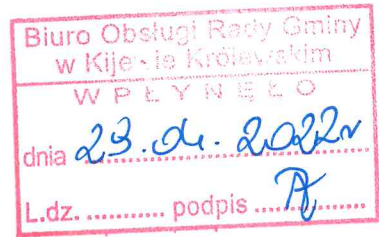 Biuro Obsługi Rady Gminy
w Kijewie Królewskim
WPŁYNĘŁO
dnia 23.04.2022r
L.dz. .......... podpis ..........